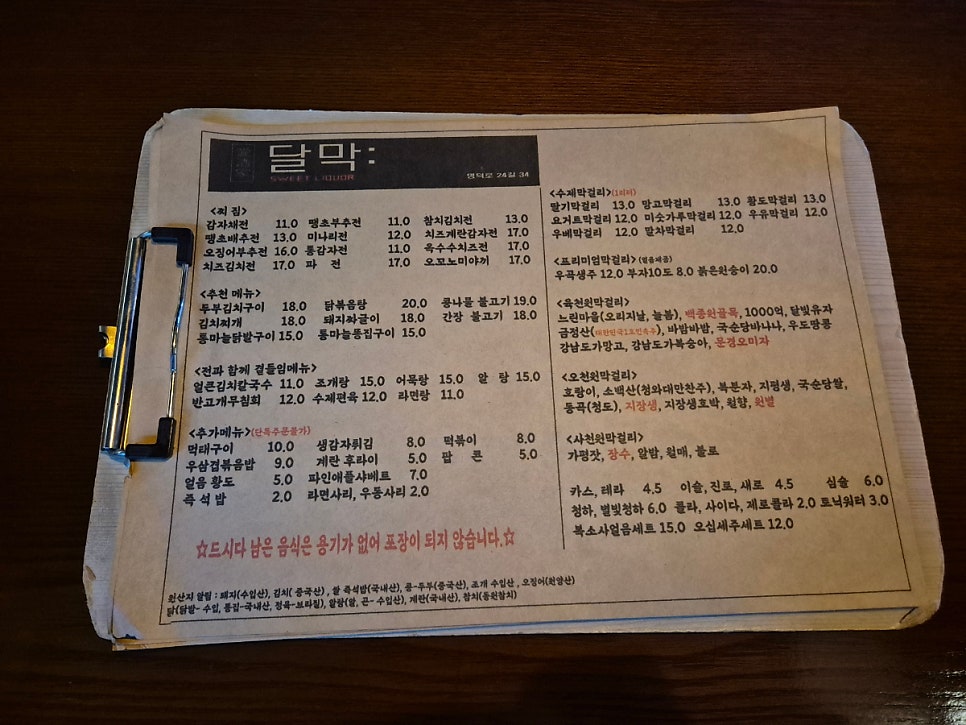 달막:
SWEET LIQUOR
명덕로 24길 34
<찌 짐>
감자채전 11.0 땡초부추전 11.0 참치김치전 13.0
땡초배추전 13.0 미나리전 12.0 치즈계란감자전 17.0
오징어부추전 16.0 통감자전 11.0 옥수수치즈전 17.0
치즈김치전 17.0 파 전 17.0 오꼬노미야끼 17.0
<추천 메뉴>
두부김치구이 18.0 닭볶음탕 20.0 콩나물 불고기 19.0
김치찌개 18.0 돼지짜글이 18.0 간장 불고기 18.0
통마늘닭발구이 15.0 통마늘똥집구이 15.0
<전과 함께 곁들임메뉴>
얼큰김치칼국수 11.0 조개탕 15.0 어묵탕 15.0 알 탕 15.0
반고개무침회 12.0 수제편육 12.0 라면탕 11.0
<추가메뉴>(단독주문불가)
먹태구이 10.0 생감자튀김 8.0 떡볶이 8.0
우삼겹볶음밥 9.0 계란 후라이 5.0 팝 콘 5.0
얼음 황도 5.0 파인애플샤베트 7.0
즉석밥 2.0 라면사리, 우동사리 2.0
☆드시다 남은 음식은 용기가 없어 포장이 되지 않습니다.☆
원산지 알림 : 돼지(수입산), 김치( 중국산) , 쌀 즉석밥(국내산), 콩-두부(중국산), 조개 수입산 , 오징어(원양산)
닭(닭발- 수입, 똥집-국내산, 정육-브라질), 알탕(알, 곤- 수입산), 계란(국내산), 참치(동원참치)
<수제막걸리>(1리터)
딸기막걸리 13.0 망고막걸리 13.0 황도막걸리 13.0
요거트막걸리 12.0 미숫가루막걸리 12.0 우유막걸리 12.0
우베막걸리 12.0 말차막걸리 12.0
<프리미엄막걸리>
우곡생주 12.0 부자10도 8.0 붉은원숭이 20.0
<육천원막걸리>
느린마을(오리지날, 늘봄), 백종원골목, 1000억, 달빛유자
금정산(대한민국1호민속주), 바밤바밤, 국순당바나나, 우도땅콩
강남도가망고, 강남도가복숭아, 문경오미자
<오천원막걸리>
호랑이, 소백산(청와대만찬주), 복분자, 지평생, 국순당쌀,
동곡(청도), 지장생, 지장생호박, 원향, 원별
<사천원막걸리>
가평잣, 장수, 알밤, 월매, 불로
카스, 테라 4.5 이슬, 진로, 새로 4.5 심술 6.0
청하, 별빛청하 6.0 콜라, 사이다, 제로콜라 2.0 토닉워터 3.0
복소사얼음세트 15.0 오십세주세트 12.0